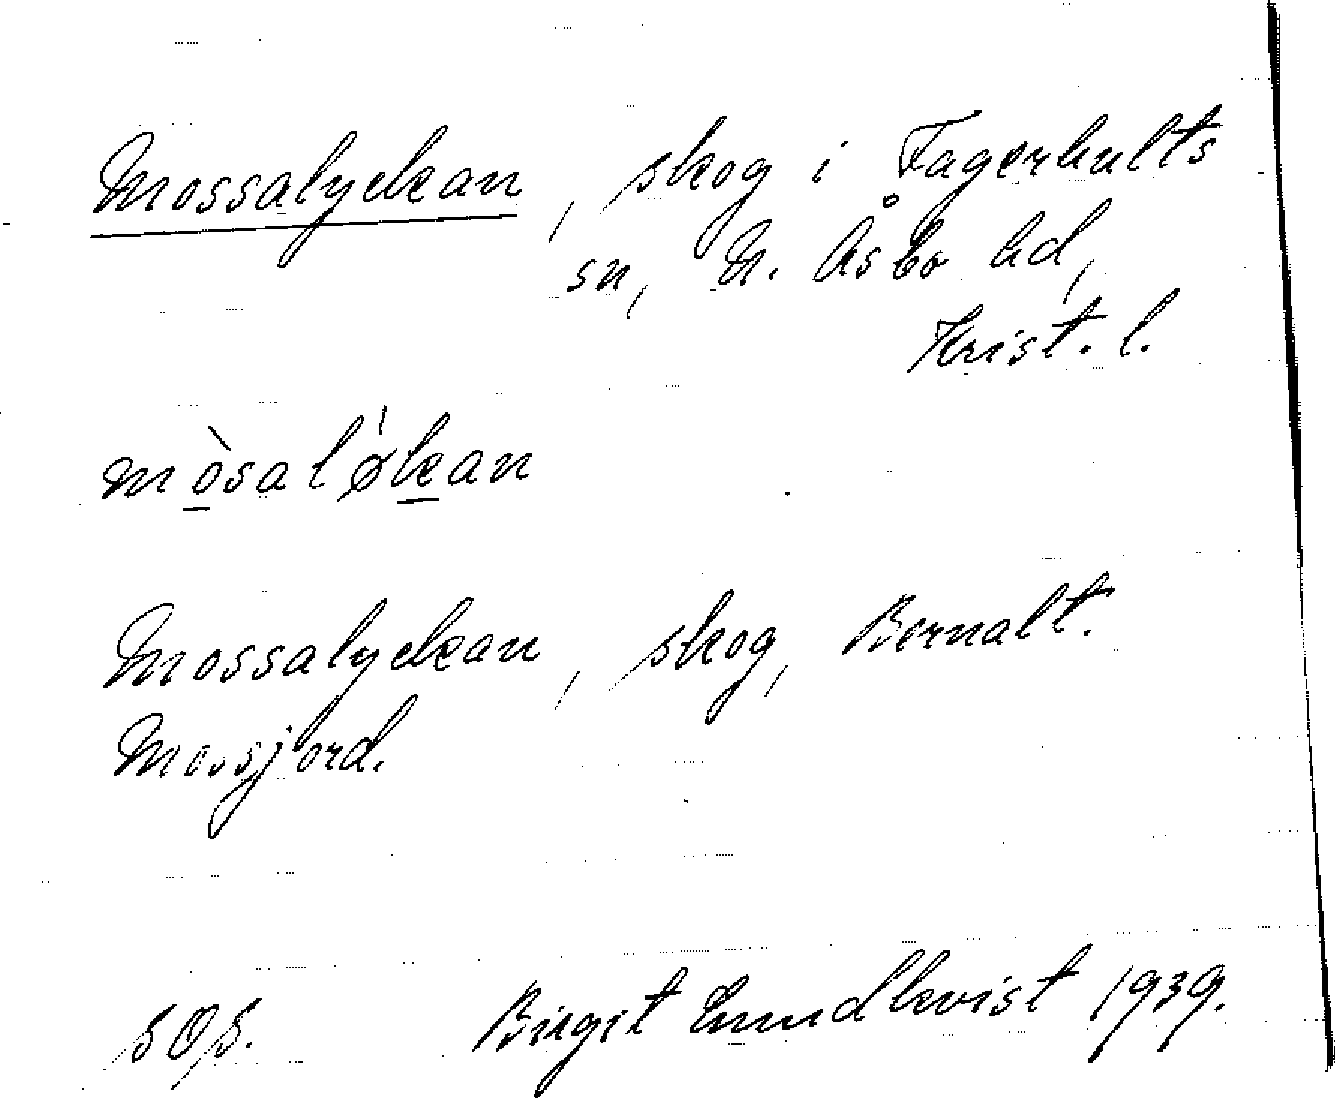 Mossalyckan, skog i Fagerhults
sn, N. Åsbo hd,
Krist. l.
mòsaløkan
Mossalyckan, skog, Bernalt.
Mossjord.
Birgit Lundkvist 1939.